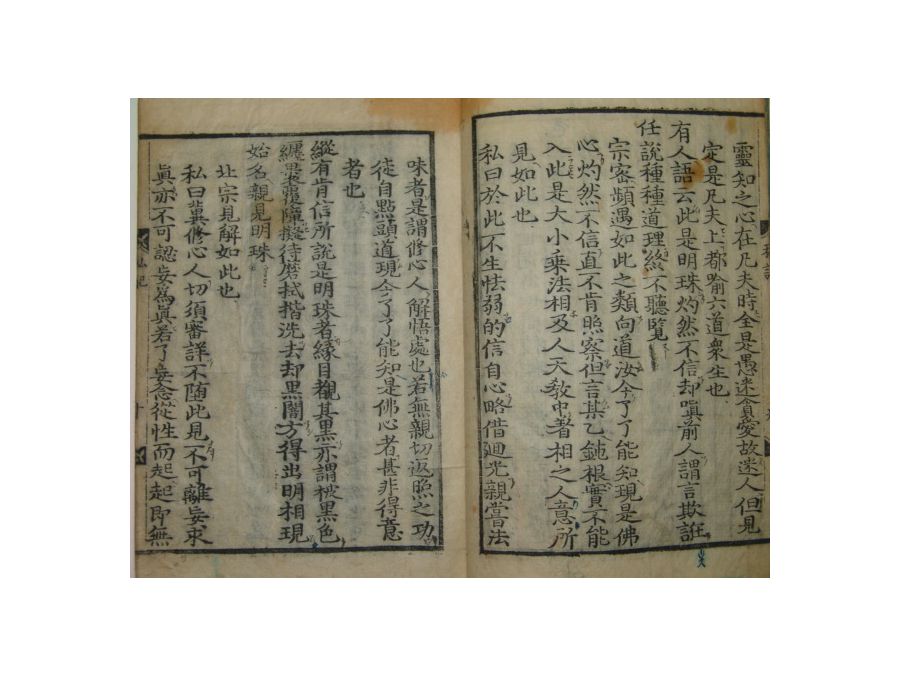 靈知之心在凡夫時全是愚迷貪愛故迷人但見
定是凡夫上都喻六道衆生也
有人語云此是明珠灼然不信却嗔前人謂言欺誑
任說種種道理終不聽覽
宗密頻遇如此之類向道汝今了了能知現是佛
心灼然不信直不肯照察但言某乙鈍根實不能
入此是大小乘法相及人天教中著相之人意所
見如此也
私曰於此不生怯弱的信自心略借廻光親嘗法
味者是謂修心人解悟處也若無親切返照之功
徒自點頭道現今了了能知是佛心者甚非得意
者也
縱有肯信所說是明珠者緣目覩其黑亦謂被黑色
纏裹覆障擬待磨拭揩洗去却黑闇方得出明相現
始名親見明珠
北宗見解如此也
私曰冀修心人切須審詳不随此見不可離妄求
眞亦不可認妄爲眞若了妄念從性而起起即無
私記